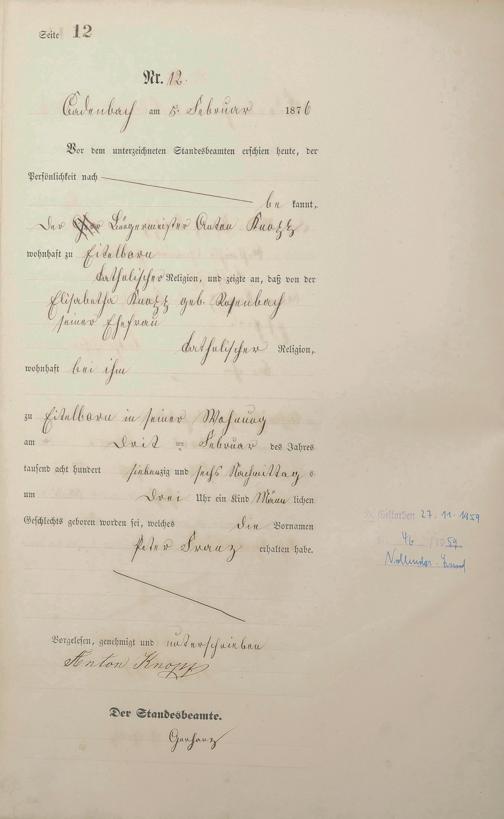 Seite 12
Nr. 12.
Cadenbach am 5. Februar 1876
Vor dem unterzeichneten Standesbeamten erschien heute, der
Persönlichkeit nach
be kannt,
der Bürgermeister Anton Knopp
wohnhaft zu Eitelborn
katholischer Religion, und zeigte an, daß von der
Elisabetha Knopp geb. Rosenbach
seiner Ehefrau
katholischer Religion,
wohnhaft bei ihm
zu Eitelborn in seiner Wohnung
am drit = Februar des Jahres
tausend acht hundert siebenzig und sechs Nachmittags
um drei Uhr ein Kind Männ lichen
Geschlechts geboren worden sei, welches die Vornamen
Peter Franz erhalten habe.
Vorgelesen, genehmigt und unterschrieben
Anton Knopp
Der Standesbeamte.
Gerharz
Gestorben 27.11.1959
46 / 59